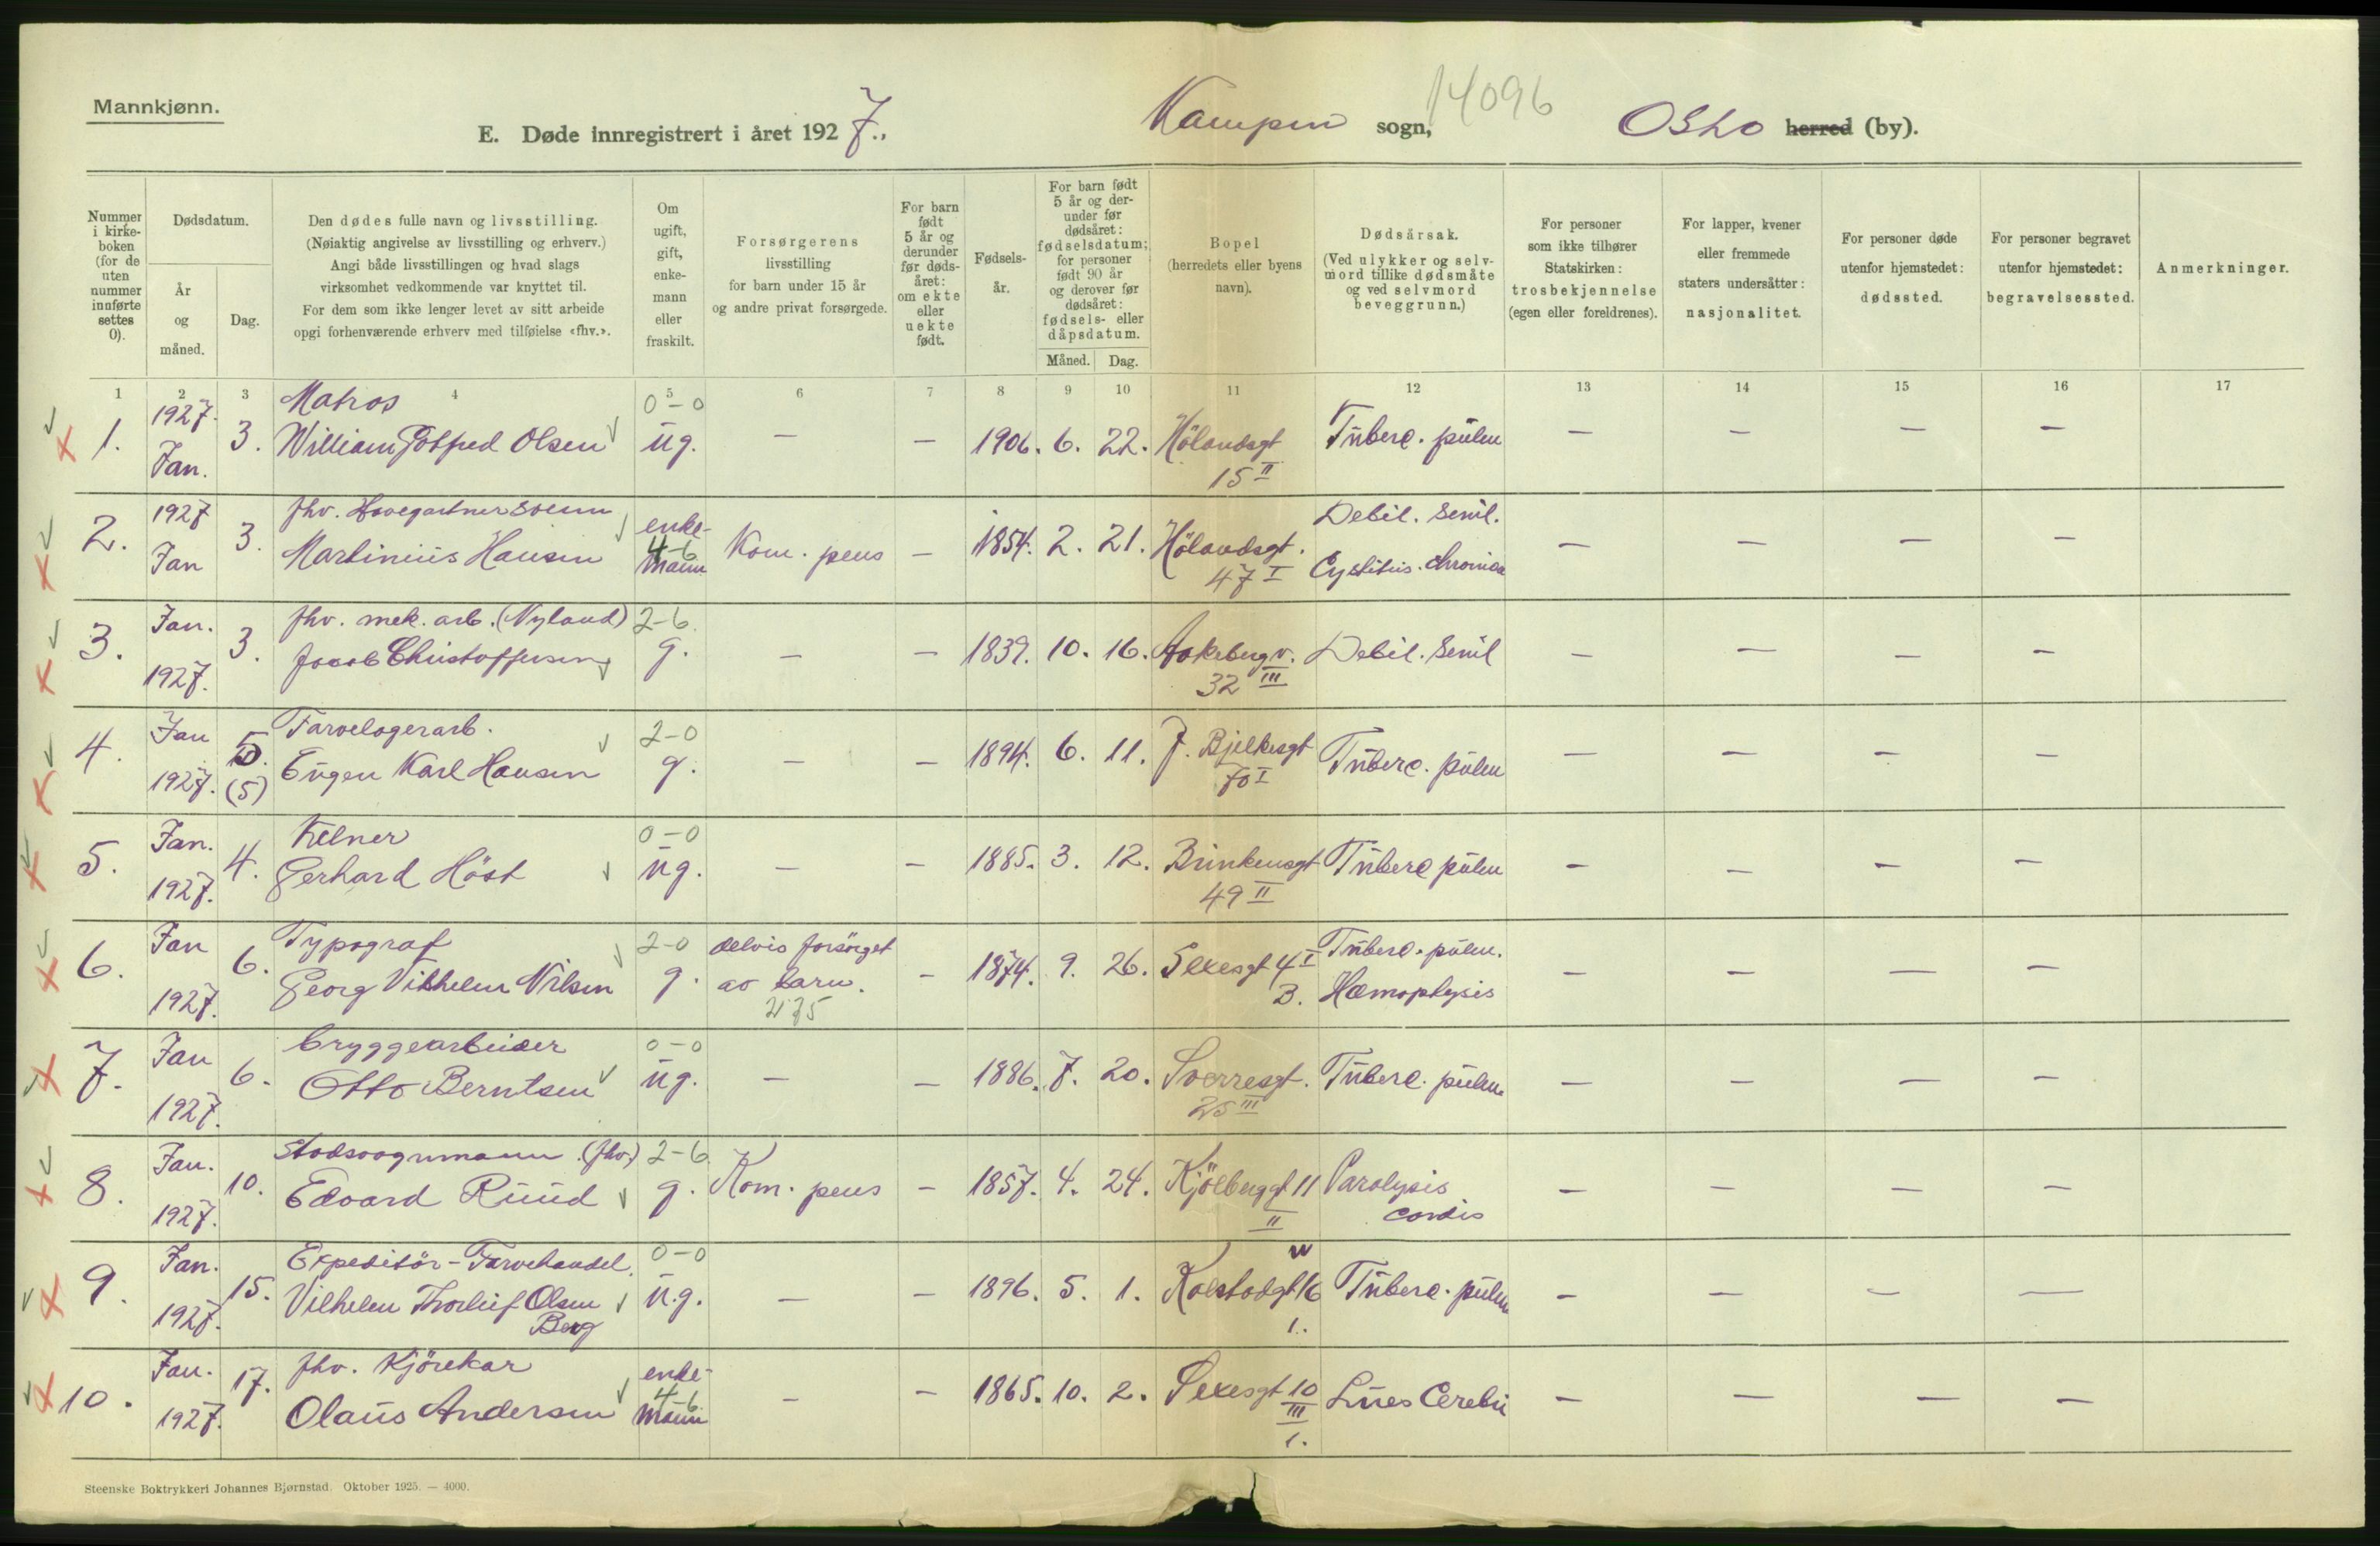 Mannkjønn.
14096
E. Døde innregistrert i året 1927., Kampen sogn, Oslo herred (by).
Nummer i kirke-boken (for de uten nummer innførte settes 0).
Dødsdatum.
År og måned.
Dag.
Den dødes fulle navn og livsstilling.
(Nøiaktig angivelse av livsstilling og erhverv.)
Angi både livsstillingen og hvad slags
virksomhet vedkommende var knyttet til.
For dem som ikke lenger levet av sitt arbeide
opgi forhenværende erhverv med tilføielse «fhv.».
Om ugift, gift, enke-mann eller fraskilt.
Forsørgerens livsstilling
for barn under 15 år
og andre privat forsørgede.
For barn født 5 år og derunder før døds-året: om ekte eller uekte født.
Fødsels-år.
For barn født 5 år og der-under før dødsåret: fødselsdatum; for personer født 90 år og derover før dødsåret: fødsels- eller dåpsdatum.
Måned. Dag.
Bopel
(herredets eller byens navn).
Dødsårsak.
(Ved ulykker og selv-mord tillike dødsmåte og ved selvmord beveggrunn.)
For personer som ikke tilhører Statskirken: trosbekjennelse (egen eller foreldrenes).
For lapper, kvener eller fremmede staters undersåtter: nasjonalitet.
For personer døde utenfor hjemstedet: dødssted.
For personer begravet utenfor hjemstedet: begravelsessted.
Anmerkninger.
1 2 3 4 5 6 7 8 9 10 11 12 13 14 15 16 17
1927. Matros 0-0
1. Jan. 3. William Gotfred Olsen ug. — — 1906. 6. 22. Hölandsgt 15 II Tuberc. pulm — — — —
1927 fhv. Havegartnersvenn enke- Debil. senil.
2. Jan 3. Martinius Hansen 4-6 mann Kom. pens — 1854. 2. 21. Hölandsgt. 47 I Cystitis. chronica — — — —
Jan. fhv. mek. arb. (Nyland) 2-6.
3. 1927. 3. Jacob Christoffersen g. — — 1839. 10. 16. Aakebergv. 32 III Debil. senil — — — —
Jan 5 Farvelagerarb. 2-0
4. 1927. (5) Eugen Karl Hansen g. — — 1894. 6. 11. J. Bjelkesgt 70 I Tuberc. pulm — — — —
Jan. Kelner 0-0
5. 1927. 4. Gerhard Höst ug. — — 1885. 3. 12. Brinkensgt 49 II Tuberc pulm — — — —
Jan Typograf 2-0 delvis forsörget Tuberc. pulm.
6. 1927. 6. Georg Vilhelm Nilsen g. av barn. — 1874. 9. 26. Sexesgt 4 I B. Hæmoptysis — — — —
Jan bryggearbeider 0-0
7. 1927. 6. Otto Berntsen ug. — — 1886. 7. 20. Sverresgt. 25 III Tuberc. pulm — — — —
Jan. Stadsvognmann (fhv) 2-6.
8. 1927. 10. Edvard Ruud g. Kom. pens — 1857. 4. 24. Kjölberggt 11 II Paralysis cordis — — — —
Jan. Expeditör-Farvehandel. 0-0
9. 1927. 15. Vilhelm Thorleif Olsen Berg u.g. — — 1896. 5. 1. Kolstadgt 16 1. Tuberc. pulm — — — —
Jan. fhv. Kjörekar enke-
10. 1927. 17. Olaus Andersen 4-6 mann — — 1865. 10. 2. Sexesgt 10 III 1. Lues Cerebri — — — —
Steenske Boktrykkeri Johannes Bjørnstad. Oktober 1925. — 4000.